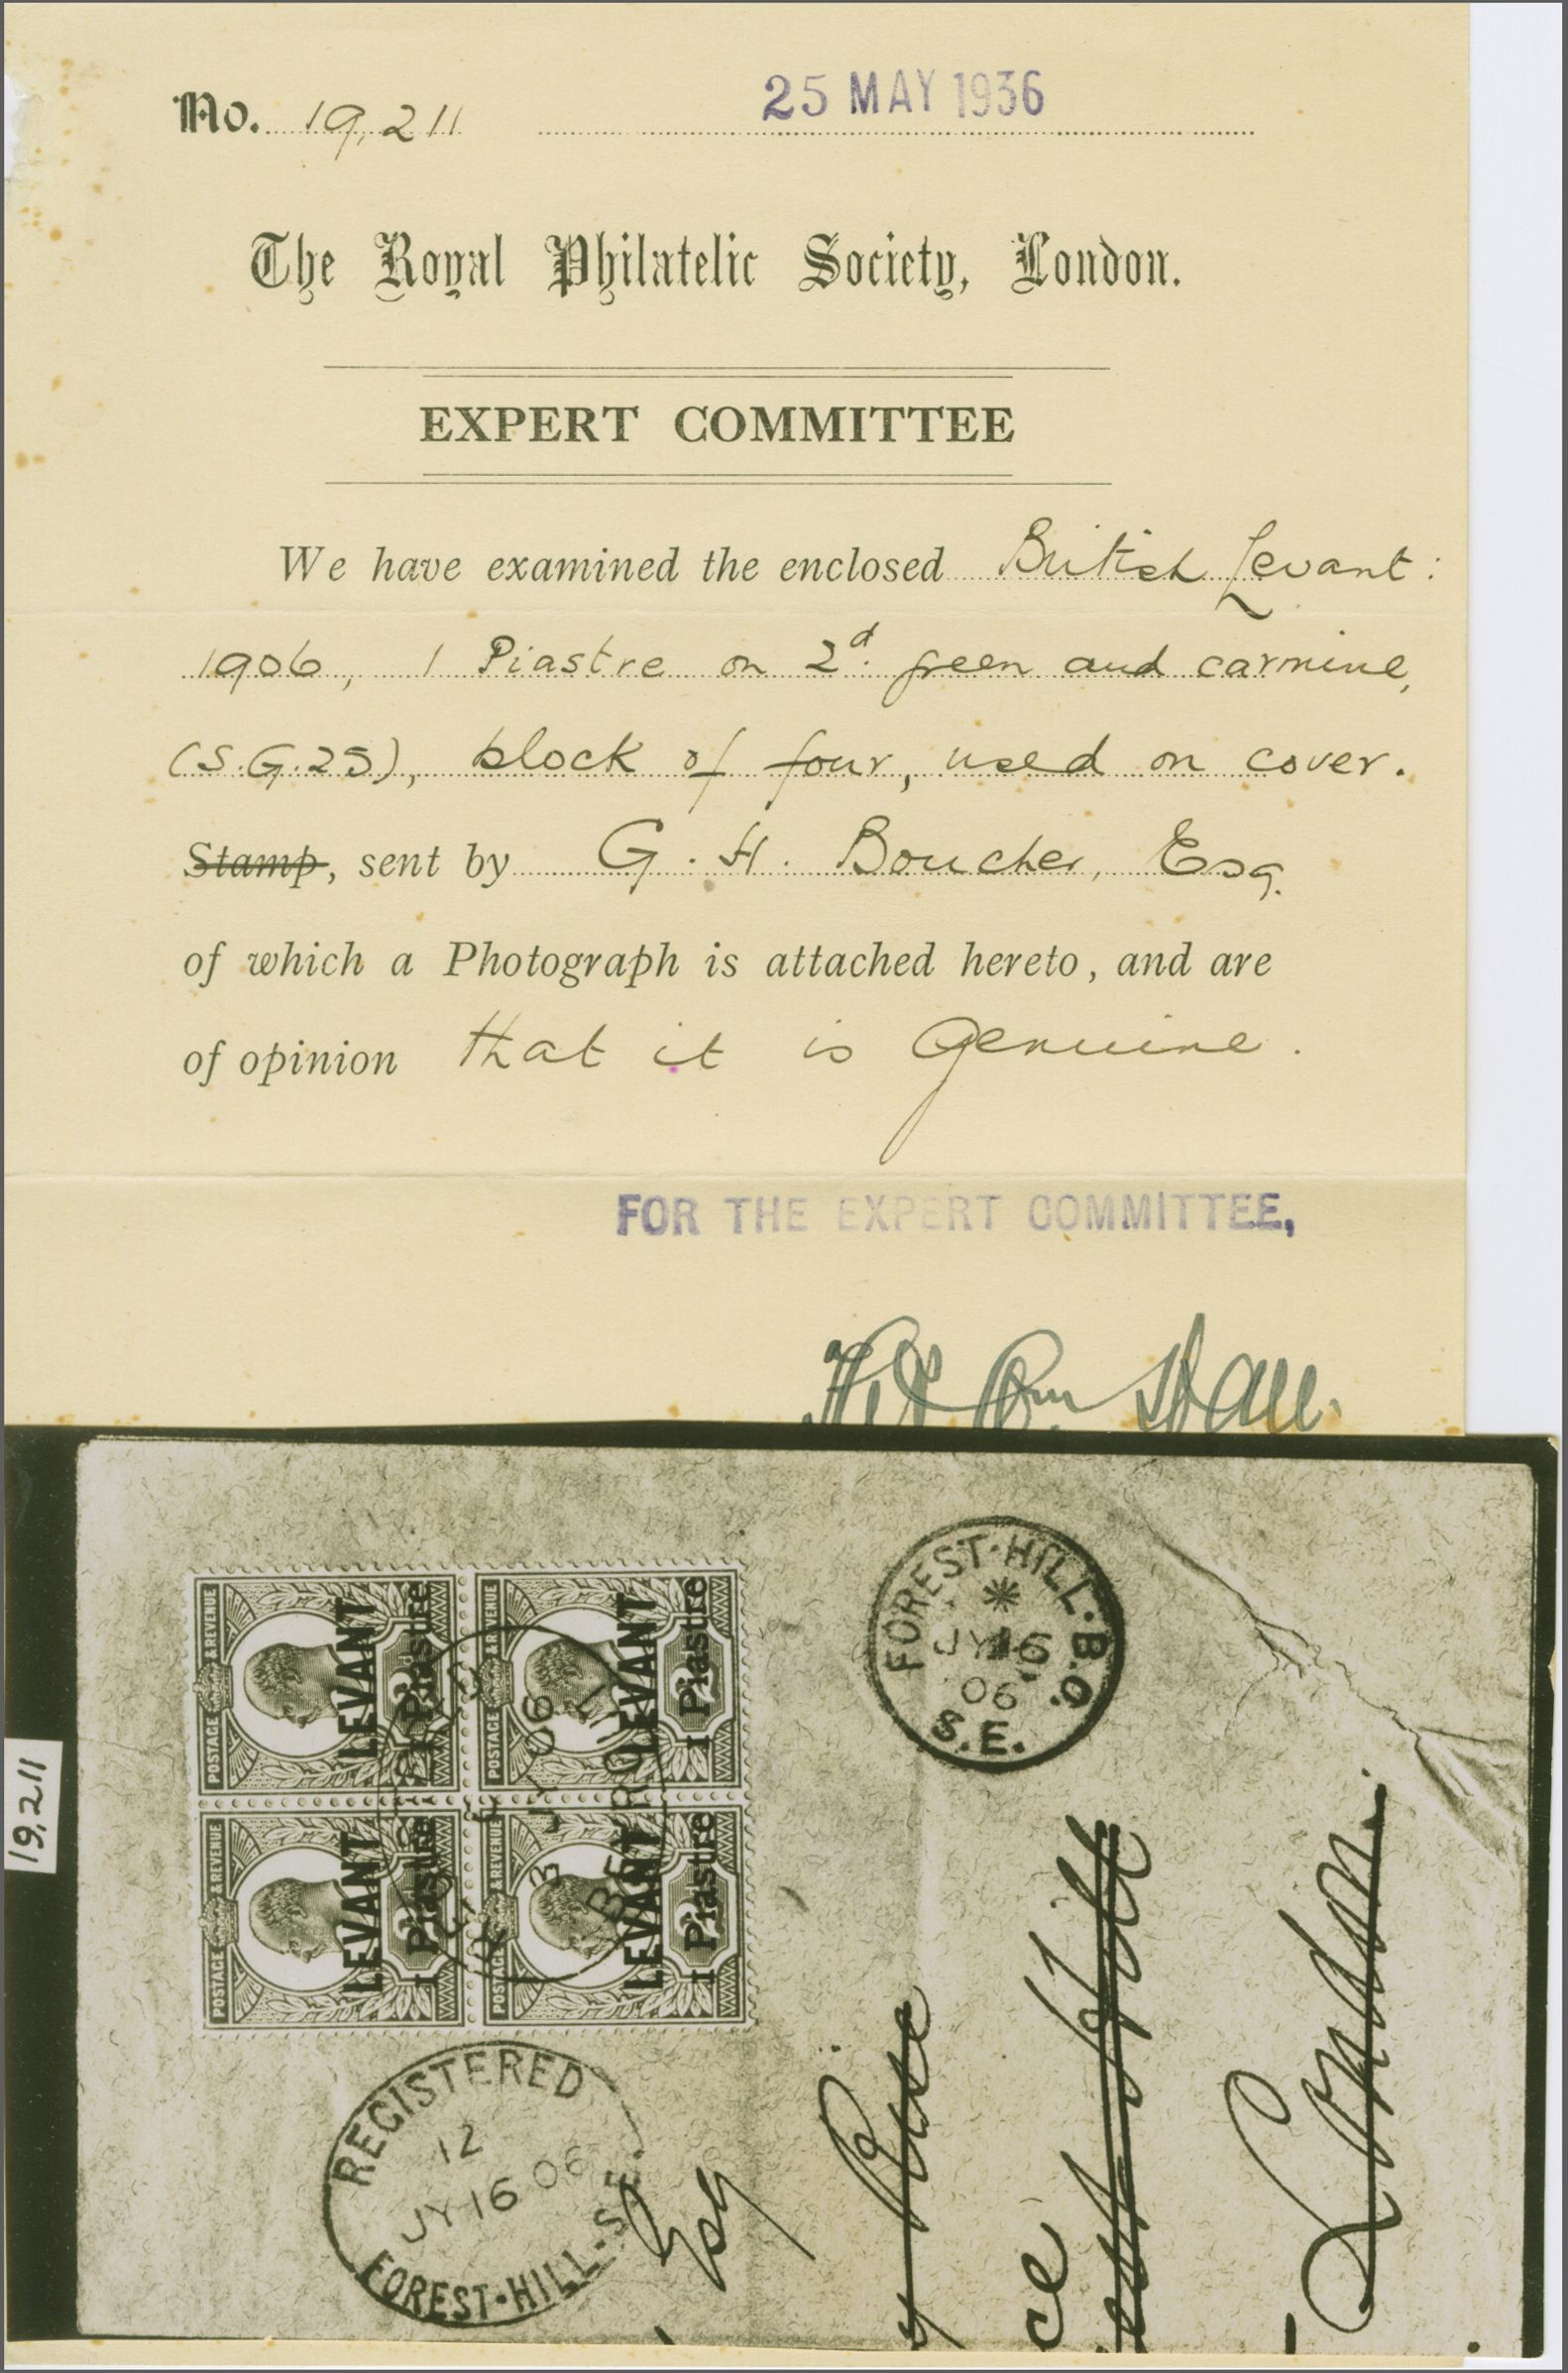 No. 19,211 25 MAY 1936
The Royal Philatelic Society, London.
EXPERT COMMITTEE
We have examined the enclosed British Levant:
1906, 1 Piastre on 2d. green and carmine,
(S.G.25), block of four, used on cover.
Stamp, sent by G. H. Boucher, Esq.
of which a Photograph is attached hereto, and are
of opinion that it is Genuine.
FOR THE EXPERT COMMITTEE,
Hall.
19,211
POSTAGE & REVENUE
LEVANT
1 Piastre
POSTAGE & REVENUE
LEVANT
1 Piastre
POSTAGE & REVENUE
LEVANT
1 Piastre
POSTAGE & REVENUE
LEVANT
1 Piastre
JY 06
FOREST·HILL·B.O.
JY 16
06
S.E.
REGISTERED
12
JY 16 06
FOREST·HILL·S.E.
Esq
Rise
Forest Hill
London.